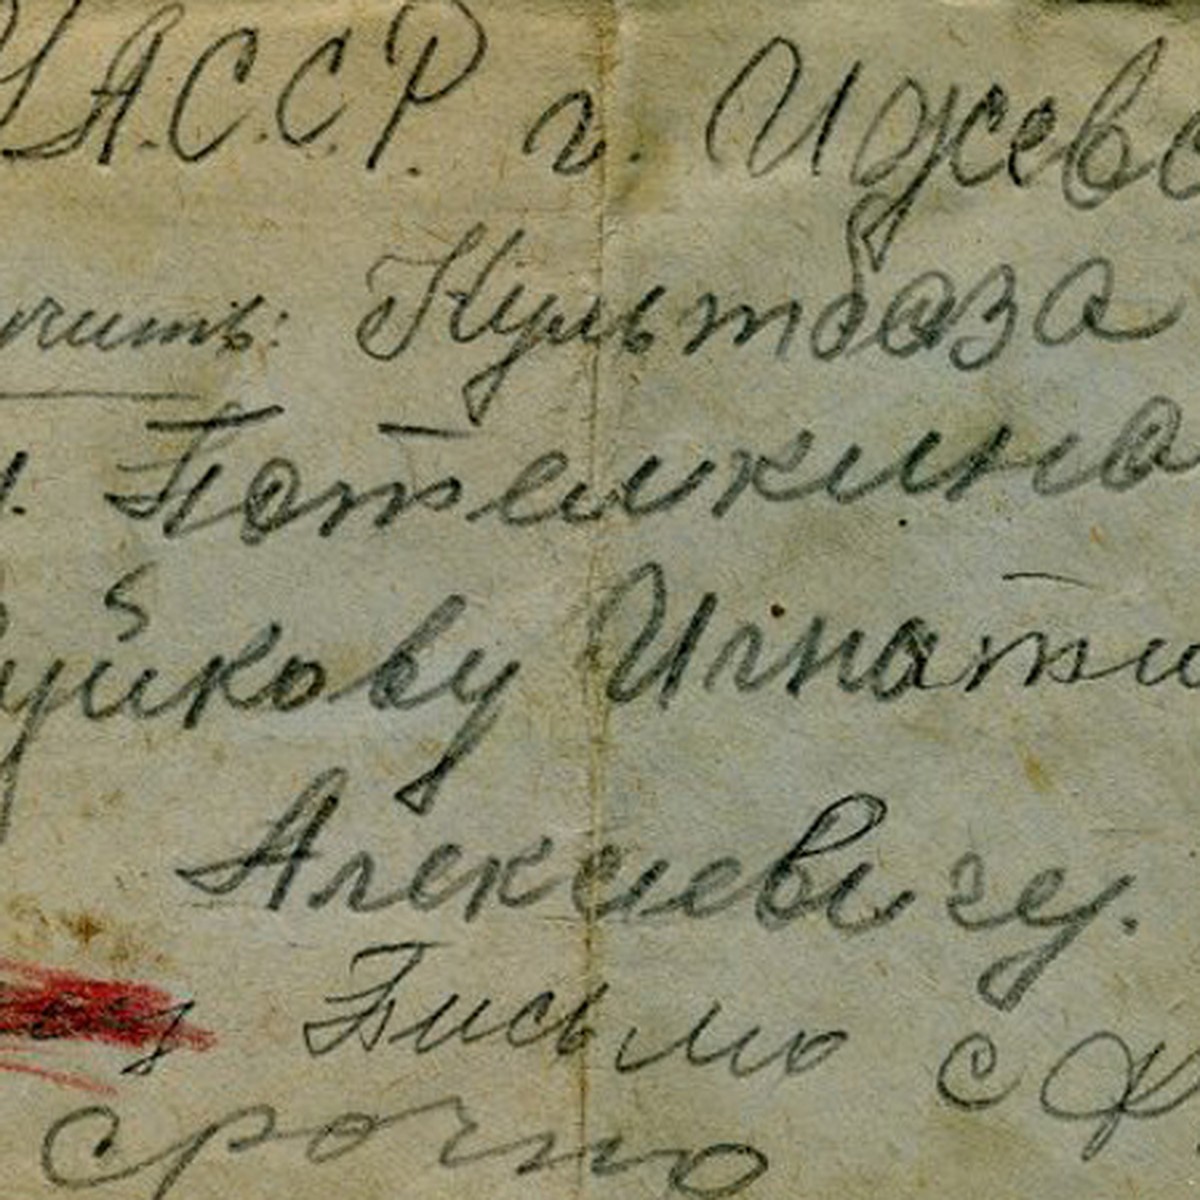 У.А.С.С.Р. г. Ижевс
учить: Культбаза
. Потемкина
уйкову Игнати
Алексеевичу.
Письмо с Ф
срочно